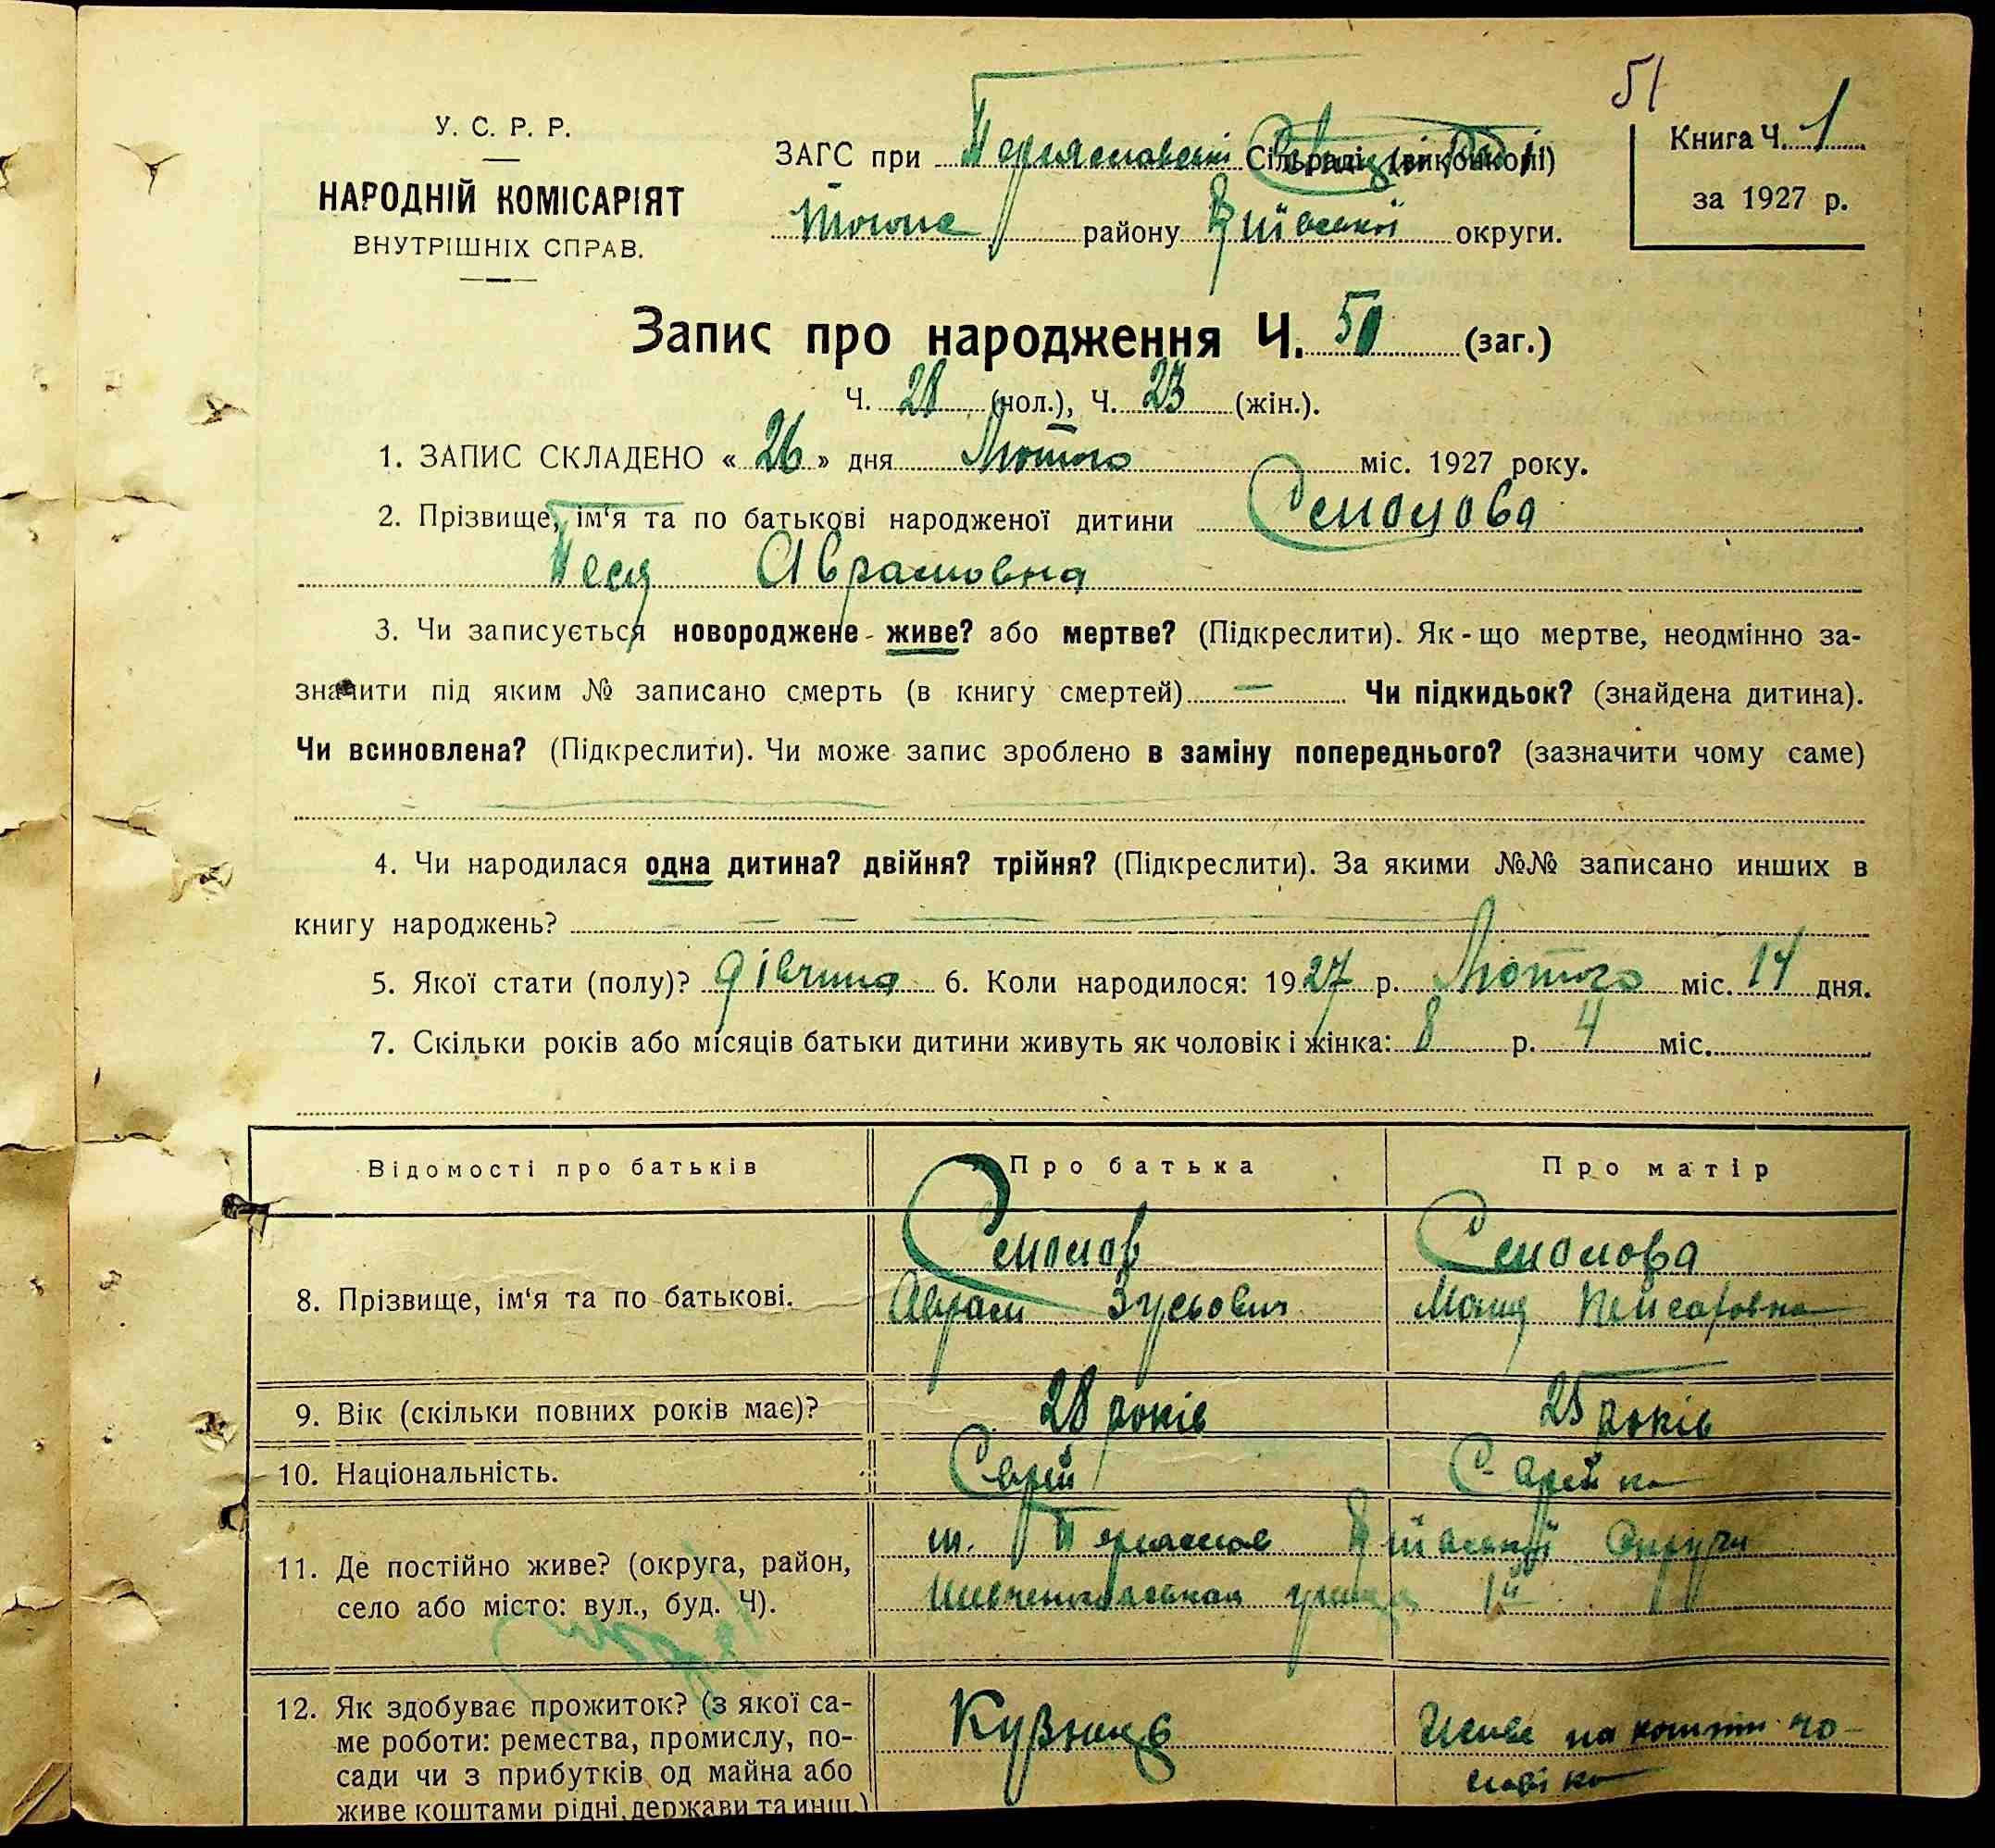 51
У. С. Р. Р.
НАРОДНІЙ КОМІСАРІЯТ
ВНУТРІШНІХ СПРАВ.
ЗАГС при Переяславській Сільраді (виконкомі)
тоже району Київської округи.
Книга Ч. 1
за 1927 р.
Запис про народження Ч. 51 (заг.)
Ч. 28 (чол.), Ч. 23 (жін.).
1. ЗАПИС СКЛАДЕНО « 26 » дня Лютого міс. 1927 року.
2. Прізвище, ім'я та по батькові народженої дитини
Песя Аврамовна
3. Чи записується новороджене - живе? або мертве? (Підкреслити). Як - що мертве, неодмінно за-
значити під яким № записано смерть (в книгу смертей) — Чи підкидьок? (знайдена дитина).
Чи всиновлена? (Підкреслити). Чи може запис зроблено в заміну попереднього? (зазначити чому саме)
4. Чи народилася одна дитина? двійня? трійня? (Підкреслити). За якими №№ записано инших в
книгу народжень?
5. Якої стати (полу)? дівчина 6. Коли народилося: 1927 р. Лютого міс. 14 дня.
7. Скільки років або місяців батьки дитини живуть як чоловік і жінка: 8 р. 4 міс.
Відомості про батьків
Про батька
Про матір
8. Прізвище, ім'я та по батькові.
Аврам Зусьович
9. Вік (скільки повних років має)?
28 років
25 років
10. Національність.
Єврей
Єврейка
11. Де постійно живе? (округа, район,
село або місто: вул., буд. Ч).
м. Переяслав Київської Округи
12. Як здобуває прожиток? (з якої са-
ме роботи: ремества, промислу, по-
сади чи з прибутків од майна або
живе коштами рідні, держави та инш.)
Кузнець
Живе на кошти чо-
ловіка